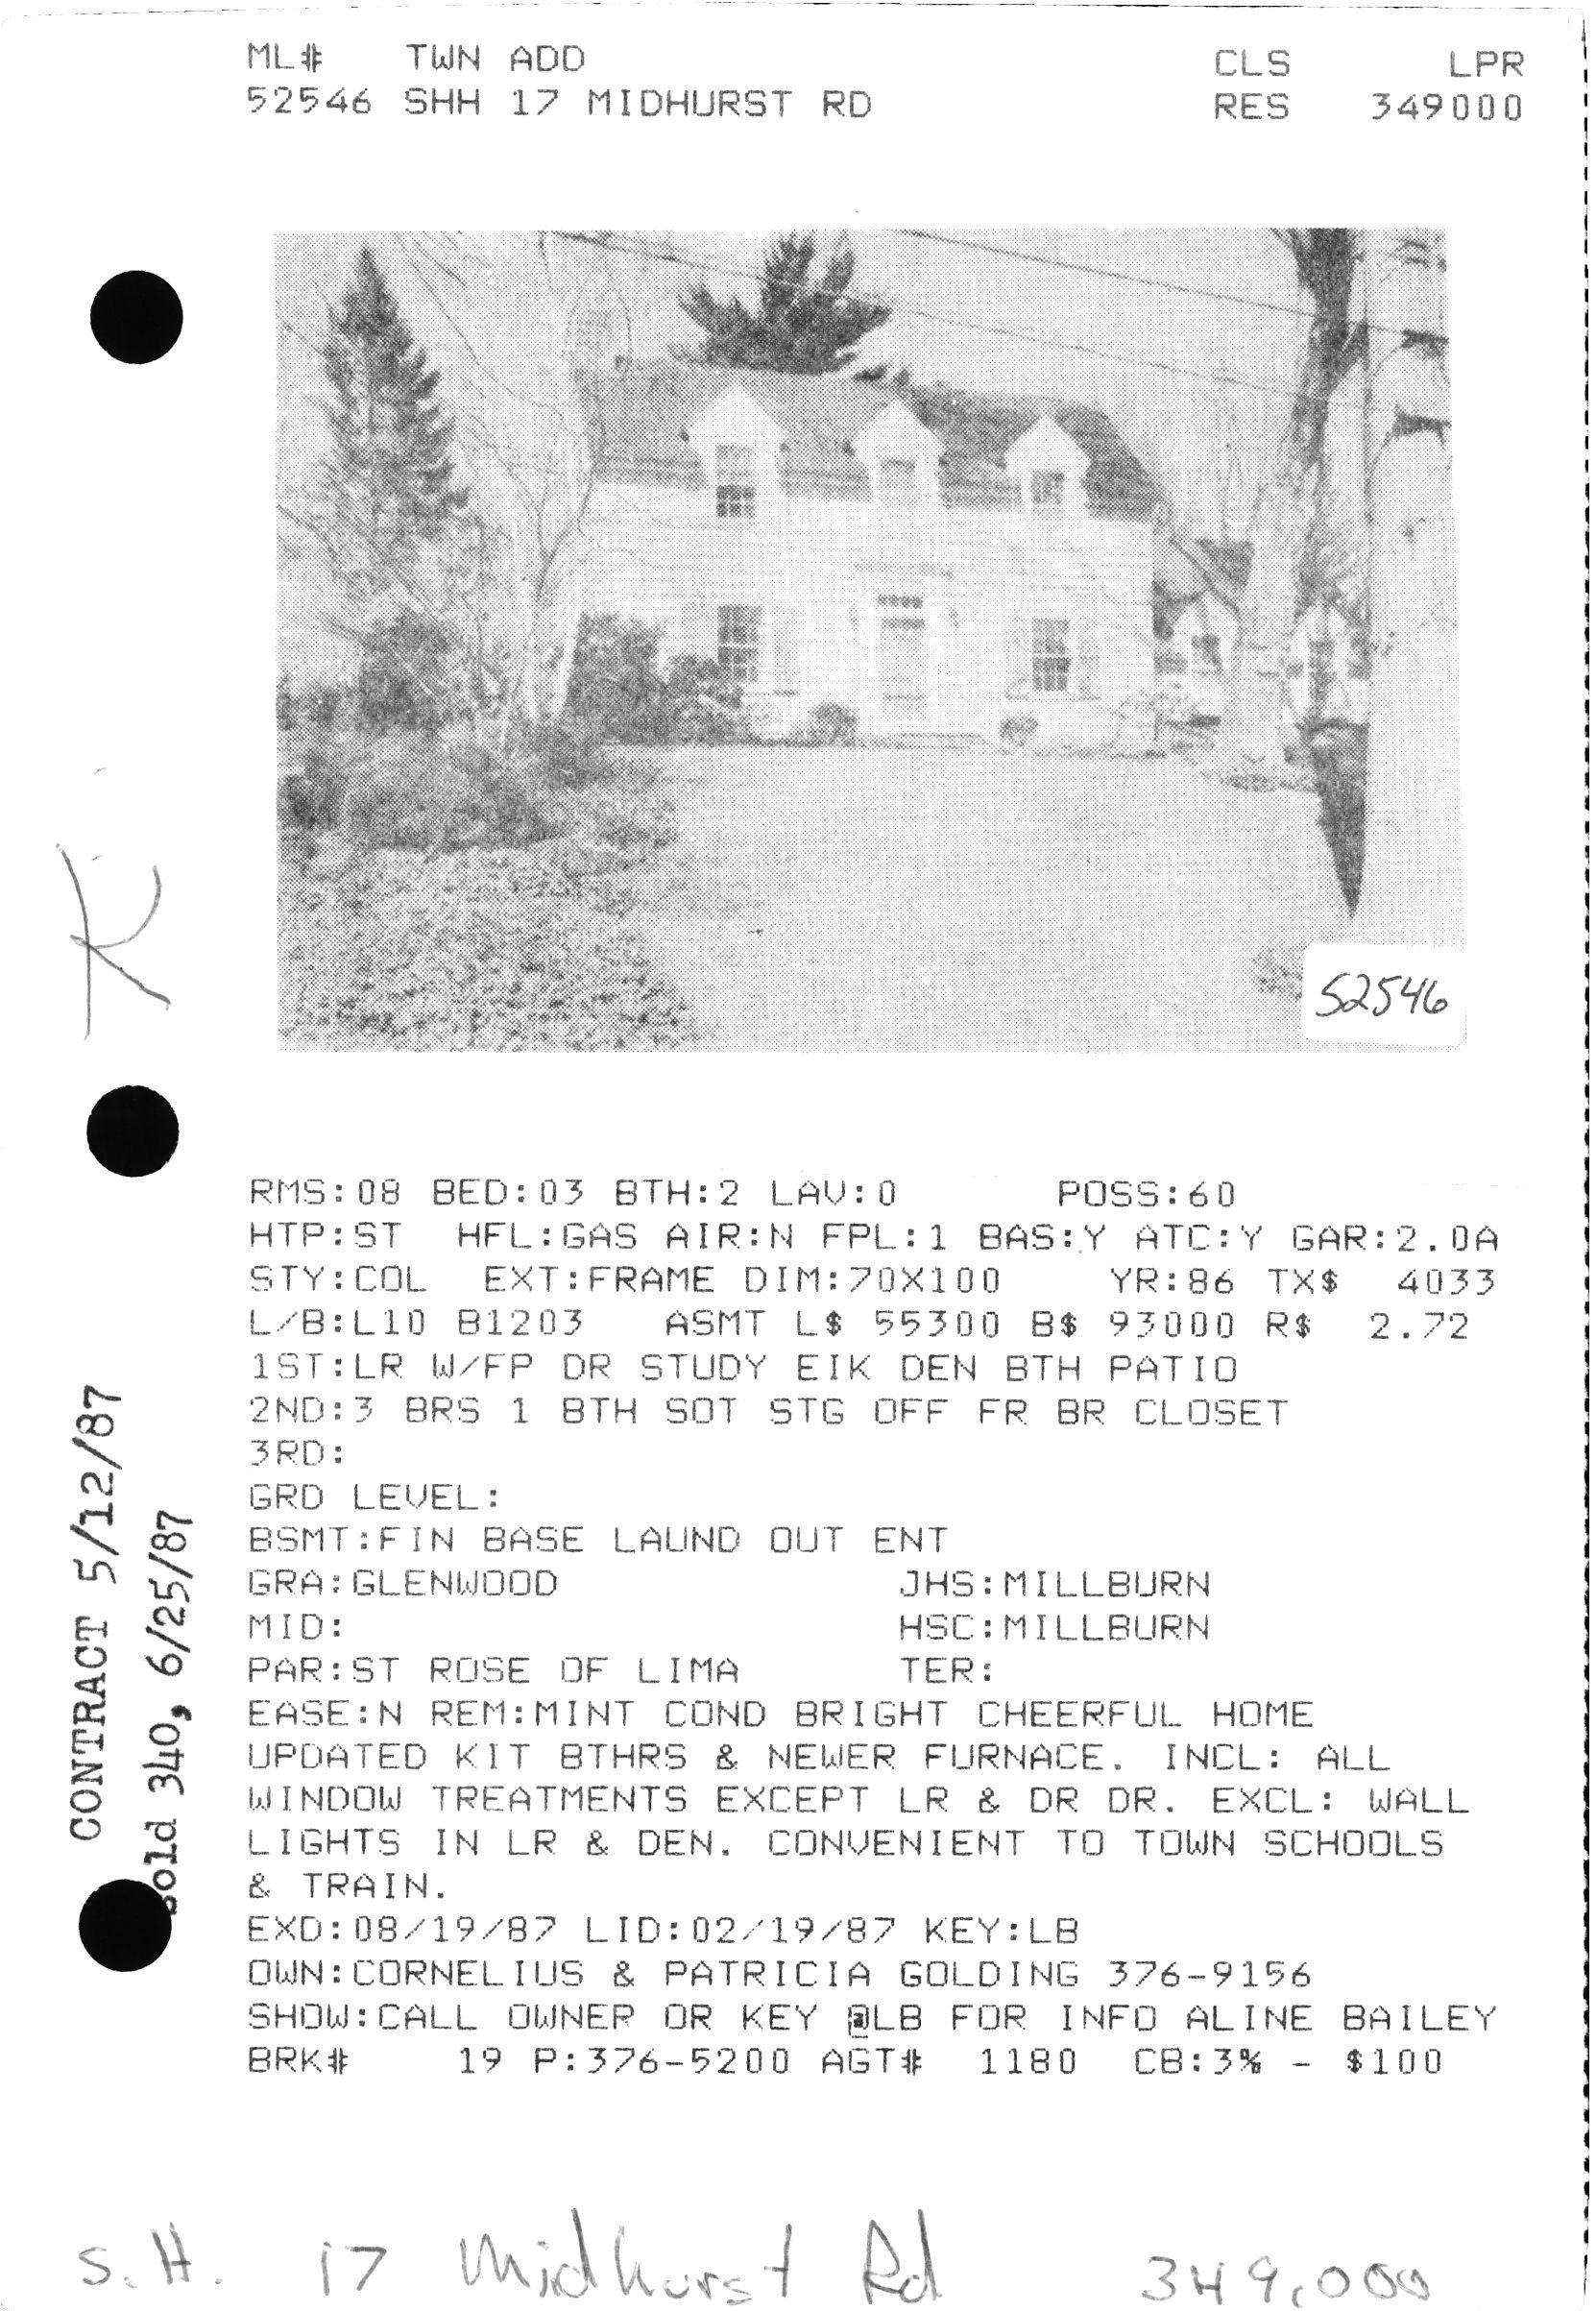 ML# TWN ADD CLS LPR
52546 SHH 17 MIDHURST RD RES 349000
52546
K
RMS:08 BED:03 BTH:2 LAV:0 POSS:60
HTP:ST HFL:GAS AIR:N FPL:1 BAS:Y ATC:Y GAR:2.0A
STY:COL EXT:FRAME DIM:70X100 YR:86 TX$ 4033
L/B:L10 B1203 ASMT L$ 55300 B$ 93000 R$ 2.72
1ST:LR W/FP DR STUDY EIK DEN BTH PATIO
2ND:3 BRS 1 BTH SOT STG OFF FR BR CLOSET
3RD:
GRD LEVEL:
BSMT:FIN BASE LAUND OUT ENT
GRA:GLENWOOD JHS:MILLBURN
MID: HSC:MILLBURN
PAR:ST ROSE OF LIMA TER:
EASE:N REM:MINT COND BRIGHT CHEERFUL HOME
UPDATED KIT BTHRS & NEWER FURNACE. INCL: ALL
WINDOW TREATMENTS EXCEPT LR & DR DR. EXCL: WALL
LIGHTS IN LR & DEN. CONVENIENT TO TOWN SCHOOLS
& TRAIN.
EXD:08/19/87 LID:02/19/87 KEY:LB
OWN:CORNELIUS & PATRICIA GOLDING 376-9156
SHOW:CALL OWNER OR KEY @LB FOR INFO ALINE BAILEY
BRK# 19 P:376-5200 AGT# 1180 CB:3% - $100
CONTRACT 5/12/87
Sold 340, 6/25/87
S.H. 17 Midhurst Rd 349,000